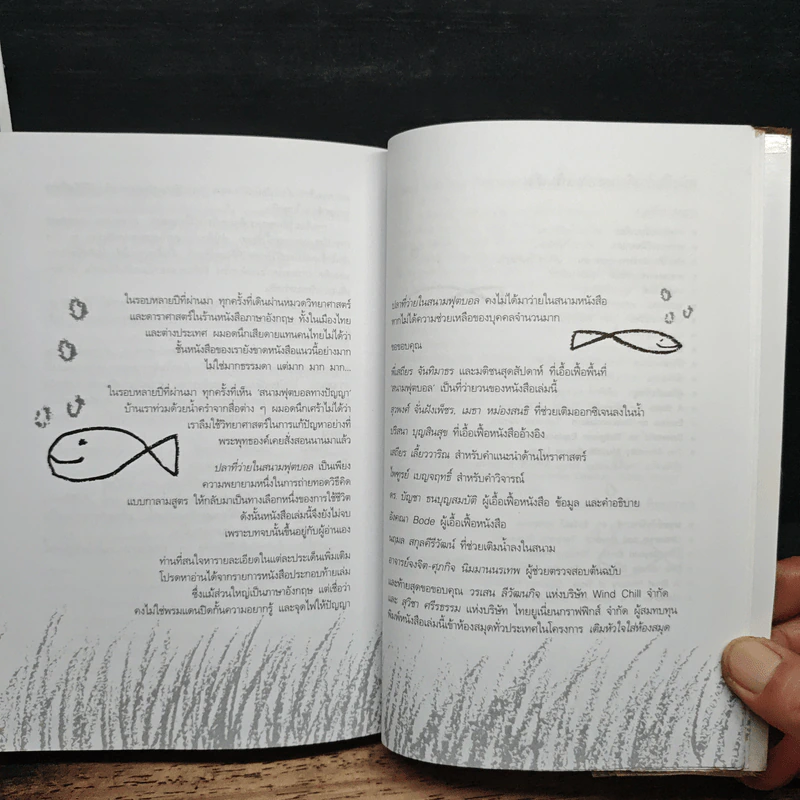 ในรอบหลายปีที่ผ่านมา ทุกครั้งที่เดินผ่านหมวดวิทยาศาสตร์
และดาราศาสตร์ในร้านหนังสือภาษาอังกฤษ ทั้งในเมืองไทย
และต่างประเทศ ผมอดนึกเสียดายแทนคนไทยไม่ได้ว่า
ชั้นหนังสือของเรายังขาดหนังสือแนวนี้อย่างมาก
ไม่ใช่มากธรรมดา แต่มาก มาก มาก...
ในรอบหลายปีที่ผ่านมา ทุกครั้งที่เห็น 'สนามฟุตบอลทางปัญญา'
บ้านเราท่วมด้วยน้ำคร่ำจากสื่อต่าง ๆ ผมอดนึกเศร้าไม่ได้ว่า
เราลืมใช้วิทยาศาสตร์ในการแก้ปัญหาอย่างที่
พระพุทธองค์เคยสั่งสอนนานมาแล้ว
ปลาที่ว่ายในสนามฟุตบอล เป็นเพียง
ความพยายามหนึ่งในการถ่ายทอดวิธีคิด
แบบกาลามสูตร ให้กลับมาเป็นทางเลือกหนึ่งของการใช้ชีวิต
ดังนั้นหนังสือเล่มนี้จึงยังไม่จบ
เพราะบทจบนั้นขึ้นอยู่กับผู้อ่านเอง
ท่านที่สนใจหารายละเอียดในแต่ละประเด็นเพิ่มเติม
โปรดหาอ่านได้จากรายการหนังสือประกอบท้ายเล่ม
ซึ่งแม้ส่วนใหญ่เป็นภาษาอังกฤษ แต่เชื่อว่า
คงไม่ใช่พรมแดนปิดกั้นความอยากรู้ และจุดไฟให้ปัญญา
ปลาที่ว่ายในสนามฟุตบอล คงไม่ได้มาว่ายในสนามหนังสือ
หากไม่ได้ความช่วยเหลือของบุคคลจำนวนมาก
ขอขอบคุณ
พี่เสถียร จันทิมาธร และมติชนสุดสัปดาห์ ที่เอื้อเฟื้อพื้นที่
'สนามฟุตบอล' เป็นที่ว่ายวนของหนังสือเล่มนี้
สุวพงศ์ จั่นฝังเพ็ชร, เมธา หม่องสนธิ ที่ช่วยเติมออกซิเจนลงในน้ำ
ปริศนา บุญสินสุข ที่เอื้อเฟื้อหนังสืออ้างอิง
เสถียร เลี้ยววาริณ สำหรับคำแนะนำด้านโหราศาสตร์
ไพฑูรย์ เบญจฤทธิ์ สำหรับคำวิจารณ์
ดร. บัญชา ธนบุญสมบัติ ผู้เอื้อเฟื้อหนังสือ ข้อมูล และคำอธิบาย
อังคณา Bode ผู้เอื้อเฟื้อหนังสือ
นฤมล สกุลคีรีวัฒน์ ที่ช่วยเติมน้ำลงในสนาม
อาจารย์จงจิต-ศุภกิจ นิมมานนรเทพ ผู้ช่วยตรวจสอบต้นฉบับ
และท้ายสุดขอขอบคุณ วรเสน ลีวัฒนกิจ แห่งบริษัท Wind Chill จำกัด
และ สุวิชา ศรีรธรรม แห่งบริษัท ไทยยูเนี่ยนกราฟฟิกส์ จำกัด ผู้สมทบทุน
พิมพ์หนังสือเล่มนี้เข้าห้องสมุดทั่วประเทศในโครงการ เติมหัวใจใส่ห้องสมุด